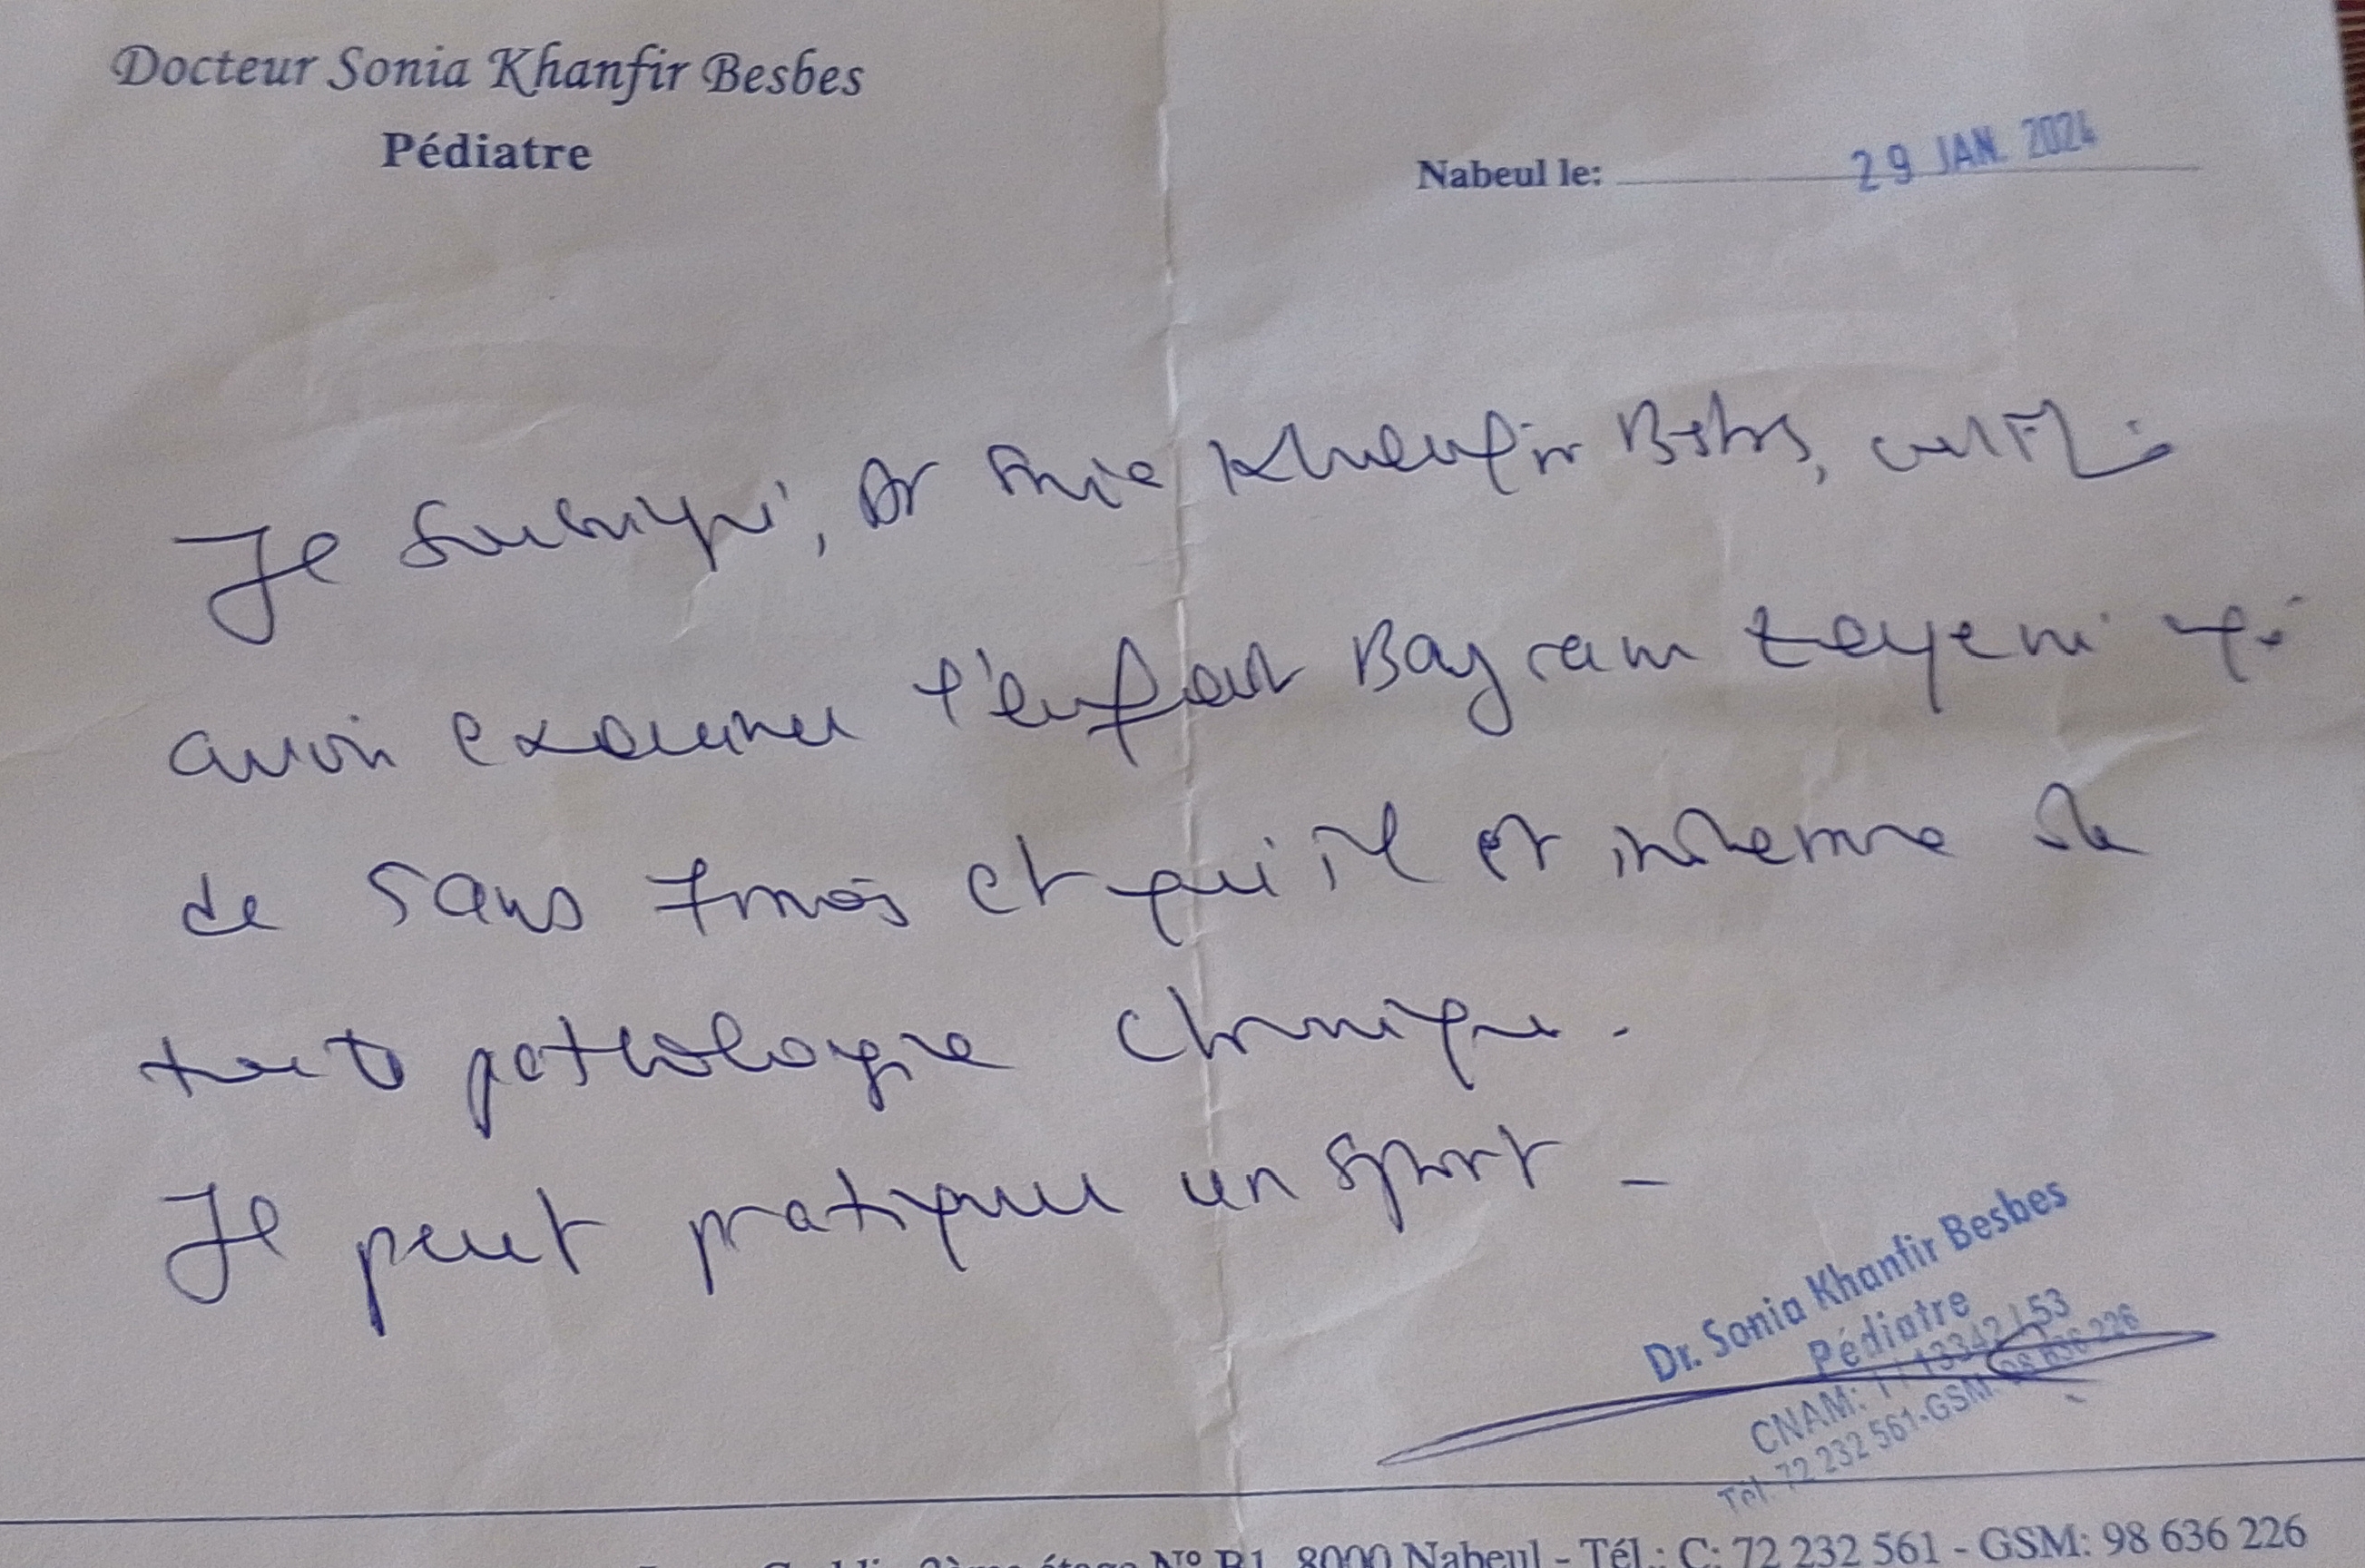 Docteur Sonia Khanfir Besbes
Pédiatre
Nabeul le: 29 JAN. 2024
Je soussigné, Dr Sonia Khanfir Besbes, certifie
avoir examiner l'enfant Bayram Zayeni
de 5ans 7mois et qu'il est indemne de
toute pathologie chronique.
Il peut pratiquer un sport -
Dr. Sonia Khanfir Besbes
Pédiatre
CNAM: 53
Tél: 72 232 561-GSM: 98 636 226
2ème étage N° B1 8000 Nabeul - Tél.: C: 72 232 561 - GSM: 98 636 226